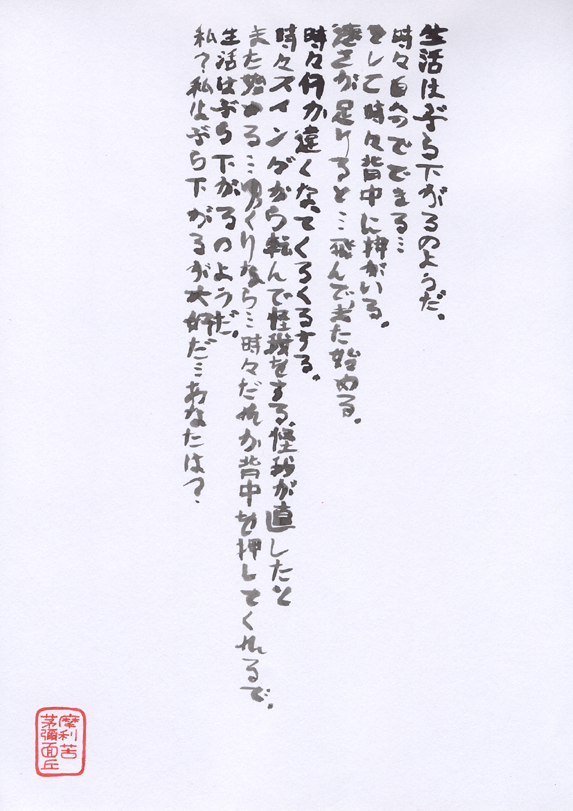 生活はぶら下がるのようだ。
時々自分でできる…
そして時々背中に押がいる。
速さが足りると…飛んでまた始める。
時々何か遠くなてくるくるする。
時々スイングから転んで怪我をする。怪我が直したと
また始める…ゆくりなら…時々だれか背中を押してくれるで。
生活はぶら下がるのようだ。
私？私はぶら下がるが大好だ…あなたは？
摩利苦
茅彌面丘